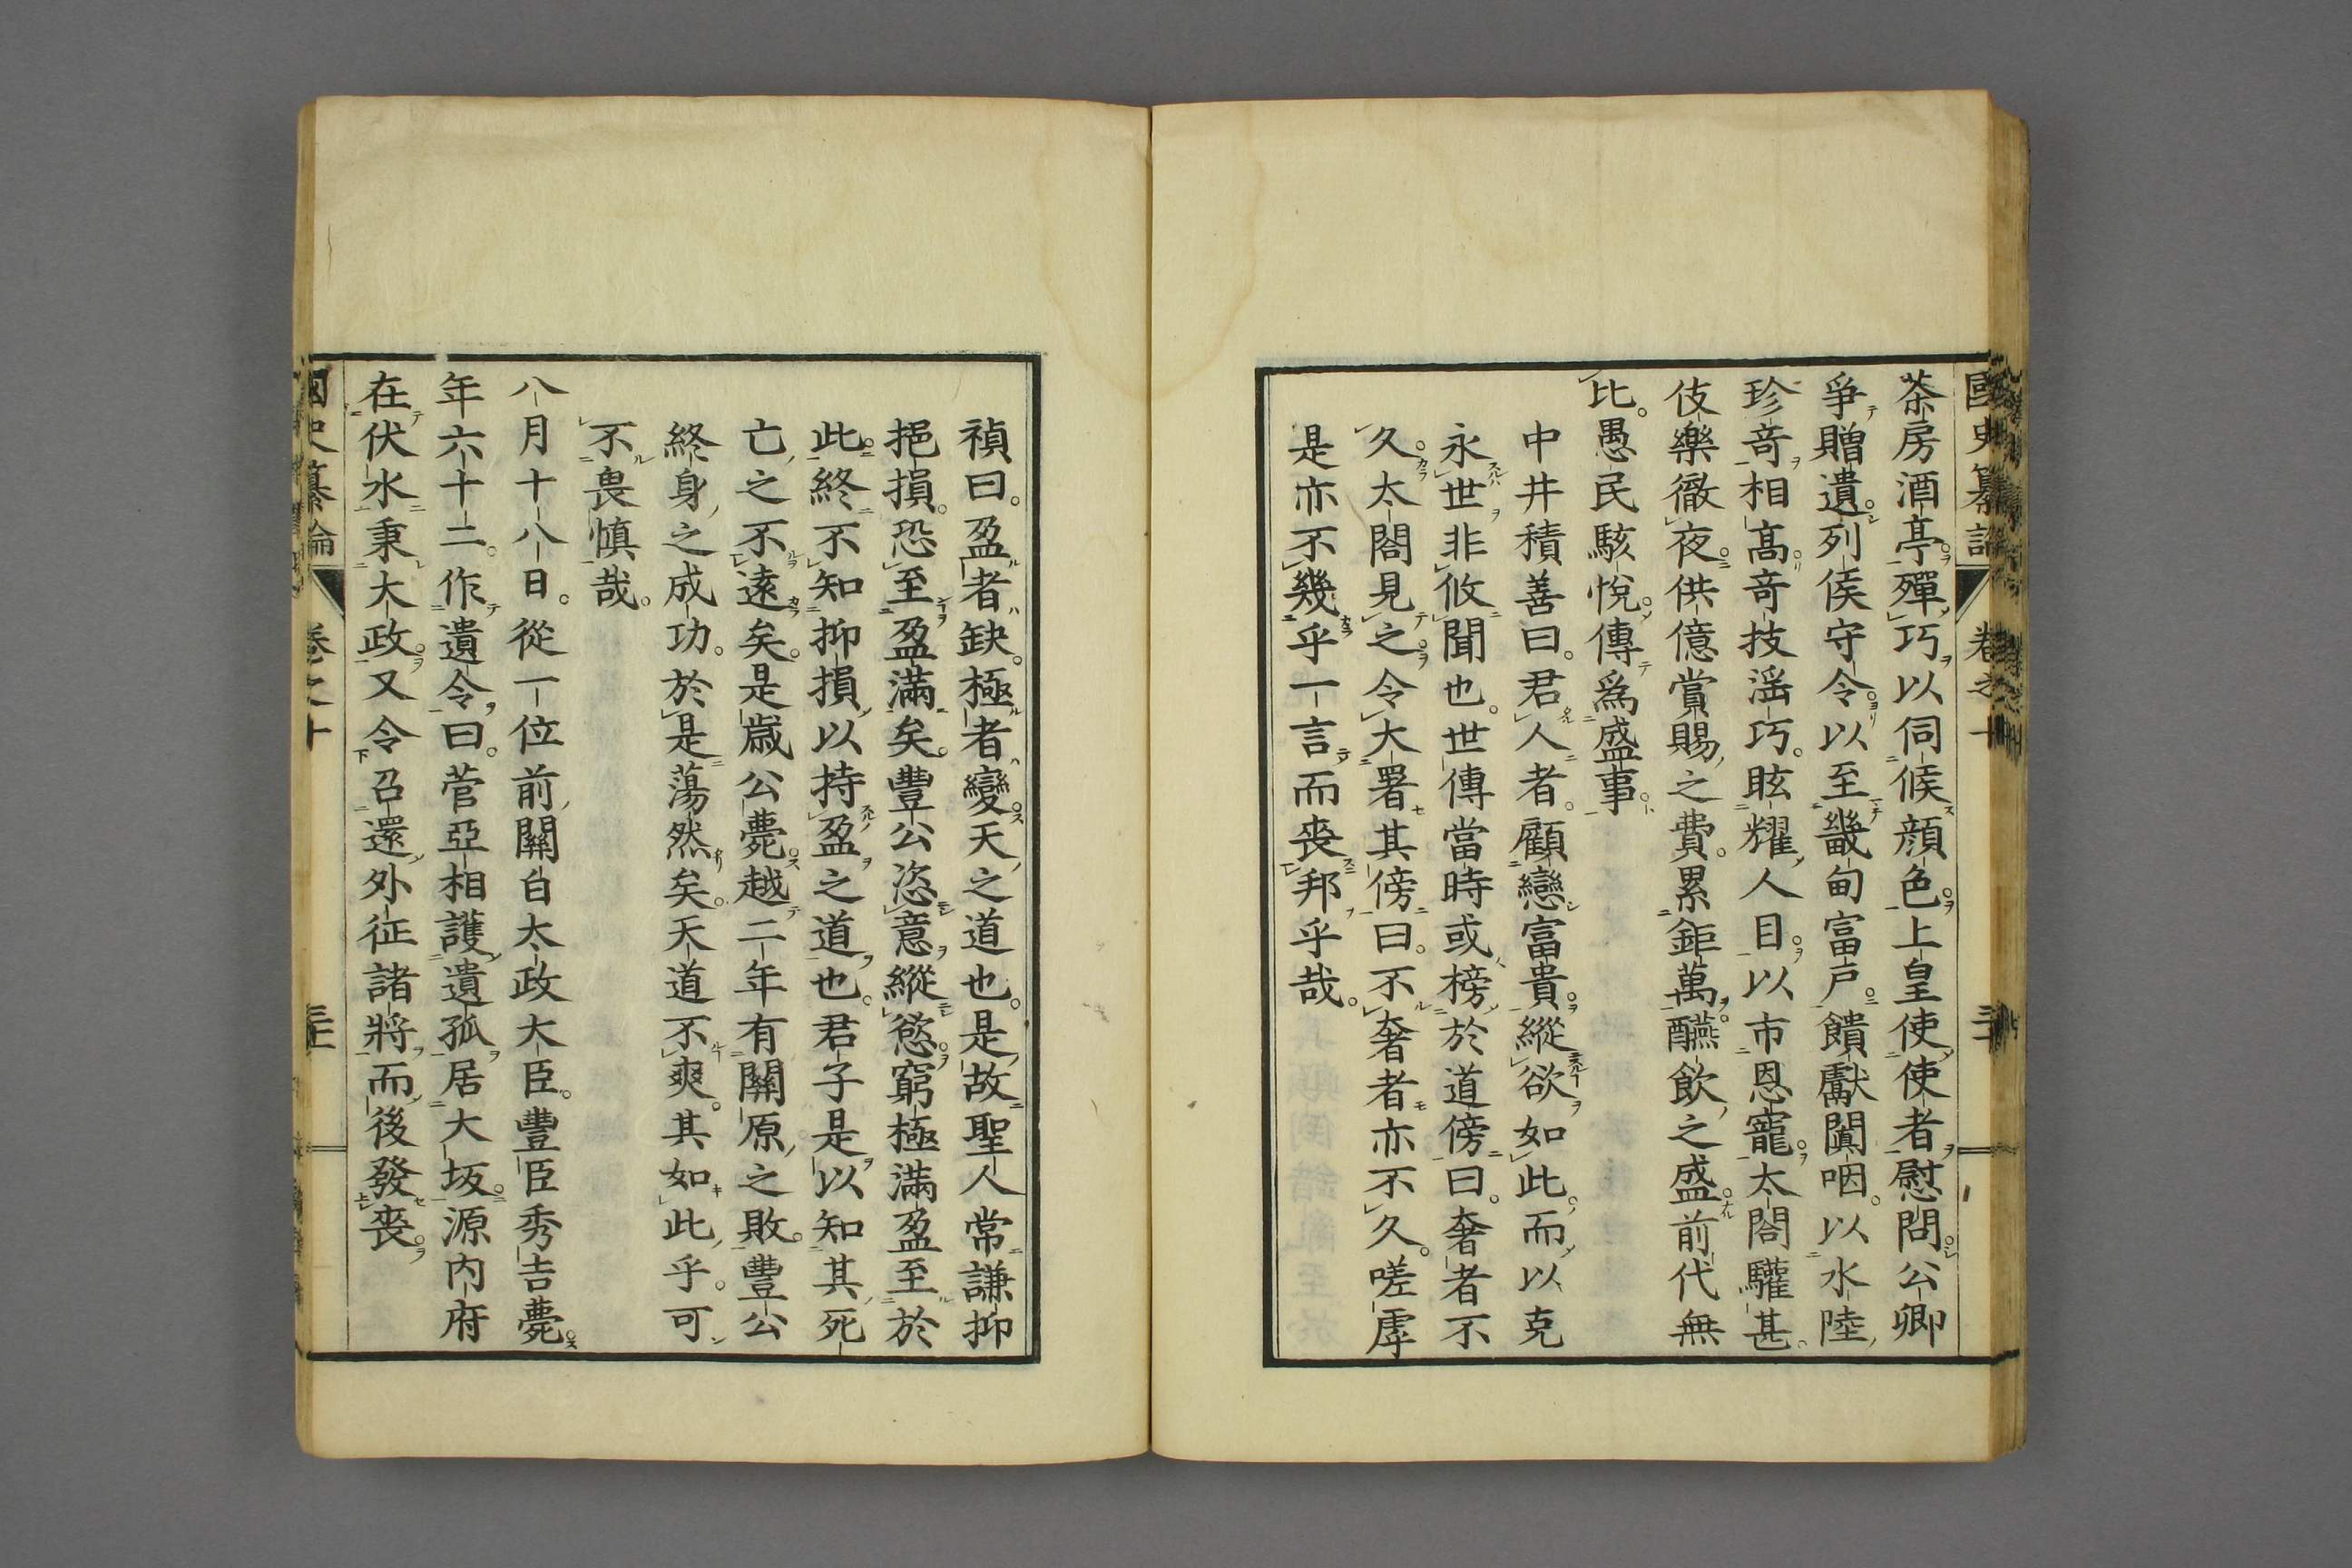 國史纂論 卷之十
茶房酒亭殫巧以伺候顔色上皇使使者慰問公卿
爭贈遺列侯守令以至畿甸富戸饋獻闐咽以水陸
珍竒相髙竒技滛巧眩耀人目以市恩寵太閤驩甚
伎樂徹夜供億賞賜之費累鉅萬醼飲之盛前代無
比愚民駭悅傳爲盛事
中井積善曰君人者顧戀富貴縱欲如此而以克
永世非攸聞也世傳當時或榜於道傍曰奢者不
久太閤見之令大署其傍曰不奢者亦不久嗟虖
是亦不幾乎一言而喪邦乎哉
禎曰盈者缺極者變天之道也是故聖人常謙抑
挹損恐至盈滿矣豐公恣意縱慾窮極滿盈至於
此終不知抑損以持盈之道也君子是以知其死
亡之不遠矣是歲公薨越二年有關原之敗豐公
終身之成功於是蕩然矣天道不爽其如此乎可
不畏慎哉
八月十八日從一位前關白太政大臣豐臣秀吉薨
年六十二作遺令曰菅亞相護遺孤居大坂源内府
在伏水秉大政又令召還外征諸將而後發喪
國史纂論 卷之十